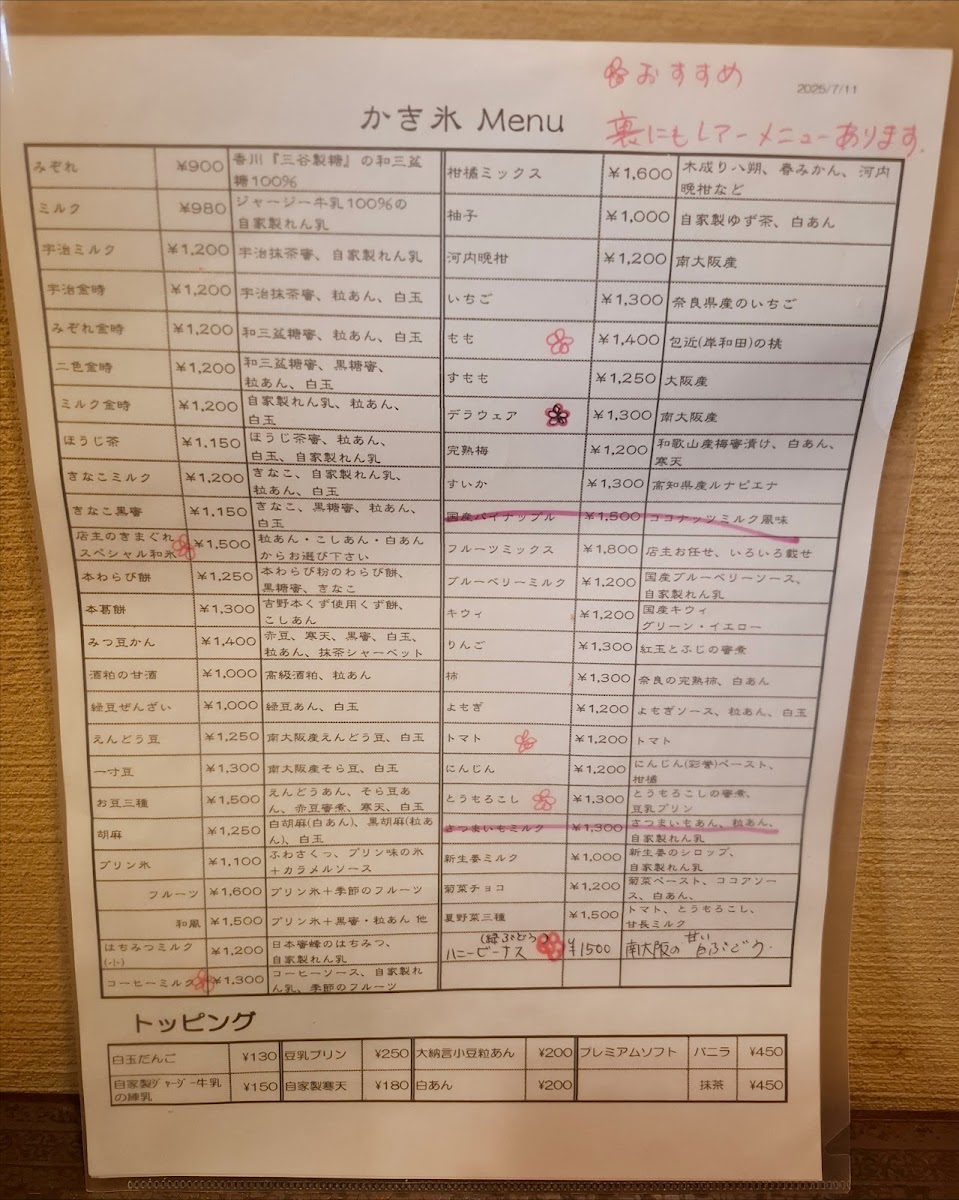 おすすめ
2025/7/11
かき氷 Menu
裏にもレアーメニューあります。
みぞれ ¥900 香川『三谷製糖』の和三盆
糖100%
ミルク ¥980 ジャージー牛乳100%の
自家製れん乳
宇治ミルク ¥1,200 宇治抹茶蜜、自家製れん乳
宇治金時 ¥1,200 宇治抹茶蜜、粒あん、白玉
みぞれ金時 ¥1,200 和三盆糖蜜、粒あん、白玉
二色金時 ¥1,200 和三盆糖蜜、黒糖蜜、
粒あん、白玉
ミルク金時 ¥1,200 自家製れん乳、粒あん、
白玉
ほうじ茶 ¥1,150 ほうじ茶蜜、粒あん、
白玉、自家製れん乳
きなこミルク ¥1,200 きなこ、自家製れん乳、
粒あん、白玉
きなこ黒蜜 ¥1,150 きなこ、黒糖蜜、粒あん、
白玉
店主のきまぐれ
スペシャル和氷 ¥1,500 粒あん・こしあん・白あん
からお選び下さい
本わらび餅 ¥1,250 本わらび粉のわらび餅、
黒糖蜜、きなこ
本葛餅 ¥1,300 吉野本くず使用くず餅、
こしあん
みつ豆かん ¥1,400 赤豆、寒天、黒蜜、白玉、
粒あん、抹茶シャーベット
酒粕の甘酒 ¥1,000 高級酒粕、粒あん
緑豆ぜんざい ¥1,000 緑豆あん、白玉
えんどう豆 ¥1,250 南大阪産えんどう豆、白玉
一寸豆 ¥1,300 南大阪産そら豆、白玉
お豆三種 ¥1,500 えんどうあん、そら豆あ
ん、赤豆蜜煮、寒天、白玉
胡麻 ¥1,250 白胡麻(白あん)、黒胡麻(粒あ
ん)、白玉
プリン氷 ¥1,100 ふわさくっ、プリン味の氷
+カラメルソース
フルーツ ¥1,600 プリン氷+季節のフルーツ
和風 ¥1,500 プリン氷+黒蜜・粒あん 他
はちみつミルク
(-!-) ¥1,200 日本蜜蜂のはちみつ、
自家製れん乳
コーヒーミルク ¥1,300 コーヒーソース、自家製れ
ん乳、季節のフルーツ
柑橘ミックス ¥1,600 木成り八朔、春みかん、河内
晩柑など
柚子 ¥1,000 自家製ゆず茶、白あん
河内晩柑 ¥1,200 南大阪産
いちご ¥1,300 奈良県産のいちご
もも ¥1,400 包近(岸和田)の桃
すもも ¥1,250 大阪産
デラウェア ¥1,300 南大阪産
完熟梅 ¥1,200 和歌山産梅蜜漬け、白あん、
寒天
すいか ¥1,300 高知県産ルナピエナ
国産パイナップル ¥1,500 ココナッツミルク風味
フルーツミックス ¥1,800 店主お任せ、いろいろ載せ
ブルーベリーミルク ¥1,200 国産ブルーベリーソース、
自家製れん乳
キウィ ¥1,200 国産キウィ
グリーン・イエロー
りんご ¥1,300 紅玉とふじの蜜煮
柿 ¥1,300 奈良の完熟柿、白あん
よもぎ ¥1,200 よもぎソース、粒あん、白玉
トマト ¥1,200 トマト
にんじん ¥1,200 にんじん(彩誉)ペースト、
柑橘
とうもろこし ¥1,300 とうもろこしの蜜煮、
豆乳プリン
さつまいもミルク ¥1,300 さつまいもあん、粒あん、
自家製れん乳
新生姜ミルク ¥1,000 新生姜のシロップ、
自家製れん乳
菊菜チョコ ¥1,200 菊菜ペースト、ココアソー
ス、白あん、
夏野菜三種 ¥1,500 トマト、とうもろこし、
甘長ミルク
(緑ぶどう)
ハニービーナス ¥1500 南大阪の甘い白ぶどう.
トッピング
白玉だんご ¥130 豆乳プリン ¥250 大納言小豆粒あん ¥200 プレミアムソフト バニラ ¥450
自家製ジャージー牛乳
の練乳 ¥150 自家製寒天 ¥180 白あん ¥200 抹茶 ¥450